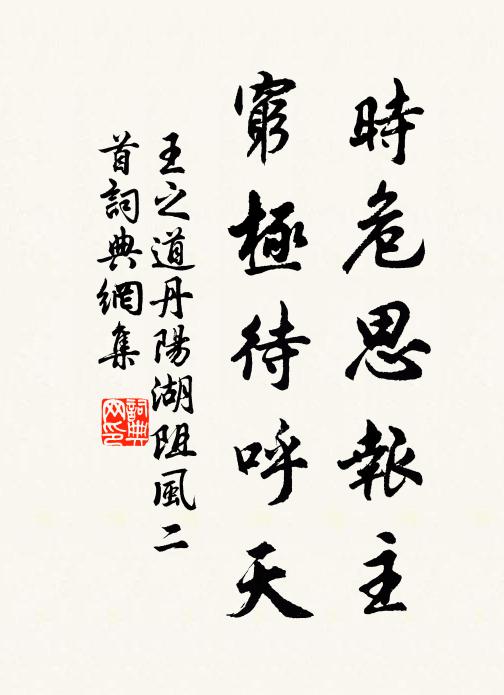 時危思報主
窮極待呼天
王之道丹陽湖阻風二
首詞典網集
詞典
网印